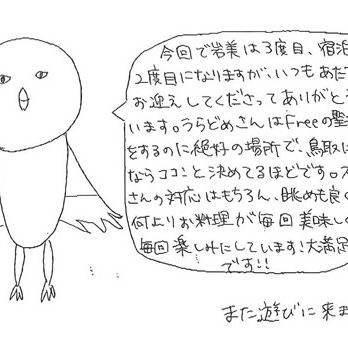 今回で岩美は3度目、宿泊
2度目になりますが、いつもあた
お迎えしてくださってありがとう
います。うらどめさんはFreeの聖
をするのに絶好の場所で、鳥取に
ならココ!と決めてるほどです。ス
さんの対応はもちろん、眺めも良く
何よりお料理が毎回美味し
毎回楽しみにしています!大満足
です!!
また遊びに来ま